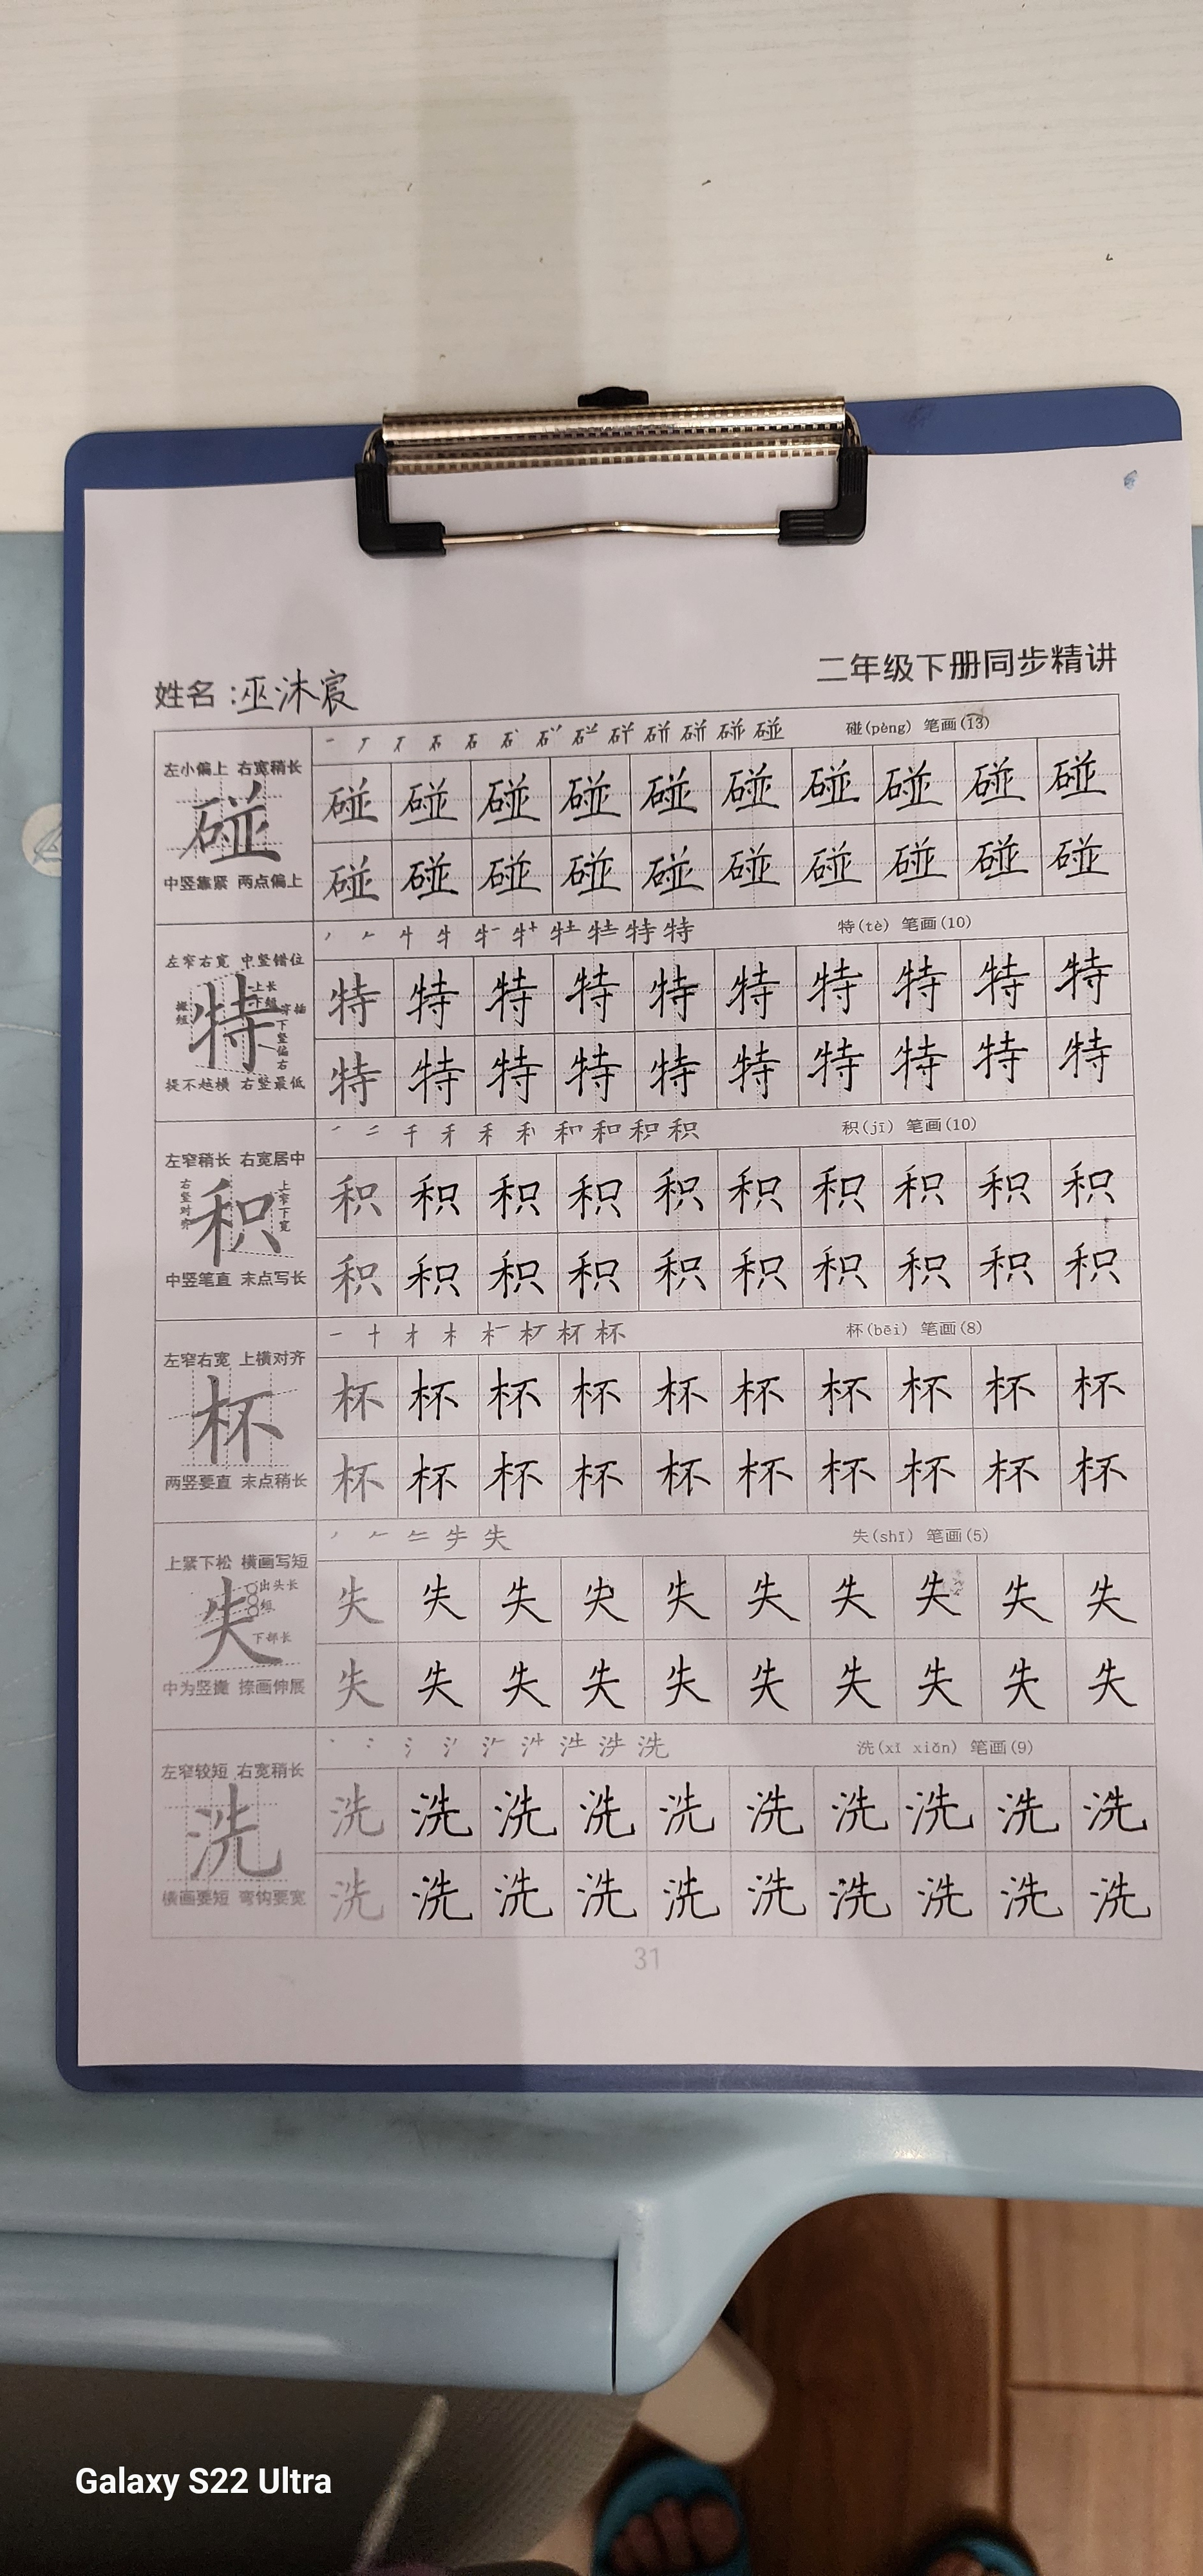 姓名:巫沐宸
二年级下册同步精讲
左小偏上 右宽稍长
碰
中竖靠紧 两点偏上
碰(pèng) 笔画(13)
碰 碰 碰 碰 碰 碰 碰 碰 碰 碰
碰 碰 碰 碰 碰 碰 碰 碰 碰 碰
左窄右宽 中竖错位
特
上长
下短
穿插
下竖偏右
提不越横 右竖最低
特(tè) 笔画(10)
特 特 特 特 特 特 特 特 特 特
特 特 特 特 特 特 特 特 特 特
左窄稍长 右宽居中
右竖对齐
积
上窄下宽
中竖笔直 末点写长
积(jī) 笔画(10)
积 积 积 积 积 积 积 积 积 积
积 积 积 积 积 积 积 积 积 积
左窄右宽 上横对齐
杯
两竖要直 末点稍长
杯(bēi) 笔画(8)
杯 杯 杯 杯 杯 杯 杯 杯 杯 杯
杯 杯 杯 杯 杯 杯 杯 杯 杯 杯
上紧下松 横画写短
失
出头长
短
下部长
中为竖撇 捺画伸展
失(shī) 笔画(5)
失 失 失 失 失 失 失 失 失 失
失 失 失 失 失 失 失 失 失 失
左窄较短 右宽稍长
洗
横画要短 弯钩要宽
洗(xǐ xiǎn) 笔画(9)
洗 洗 洗 洗 洗 洗 洗 洗 洗 洗
洗 洗 洗 洗 洗 洗 洗 洗 洗 洗
31
Galaxy S22 Ultra